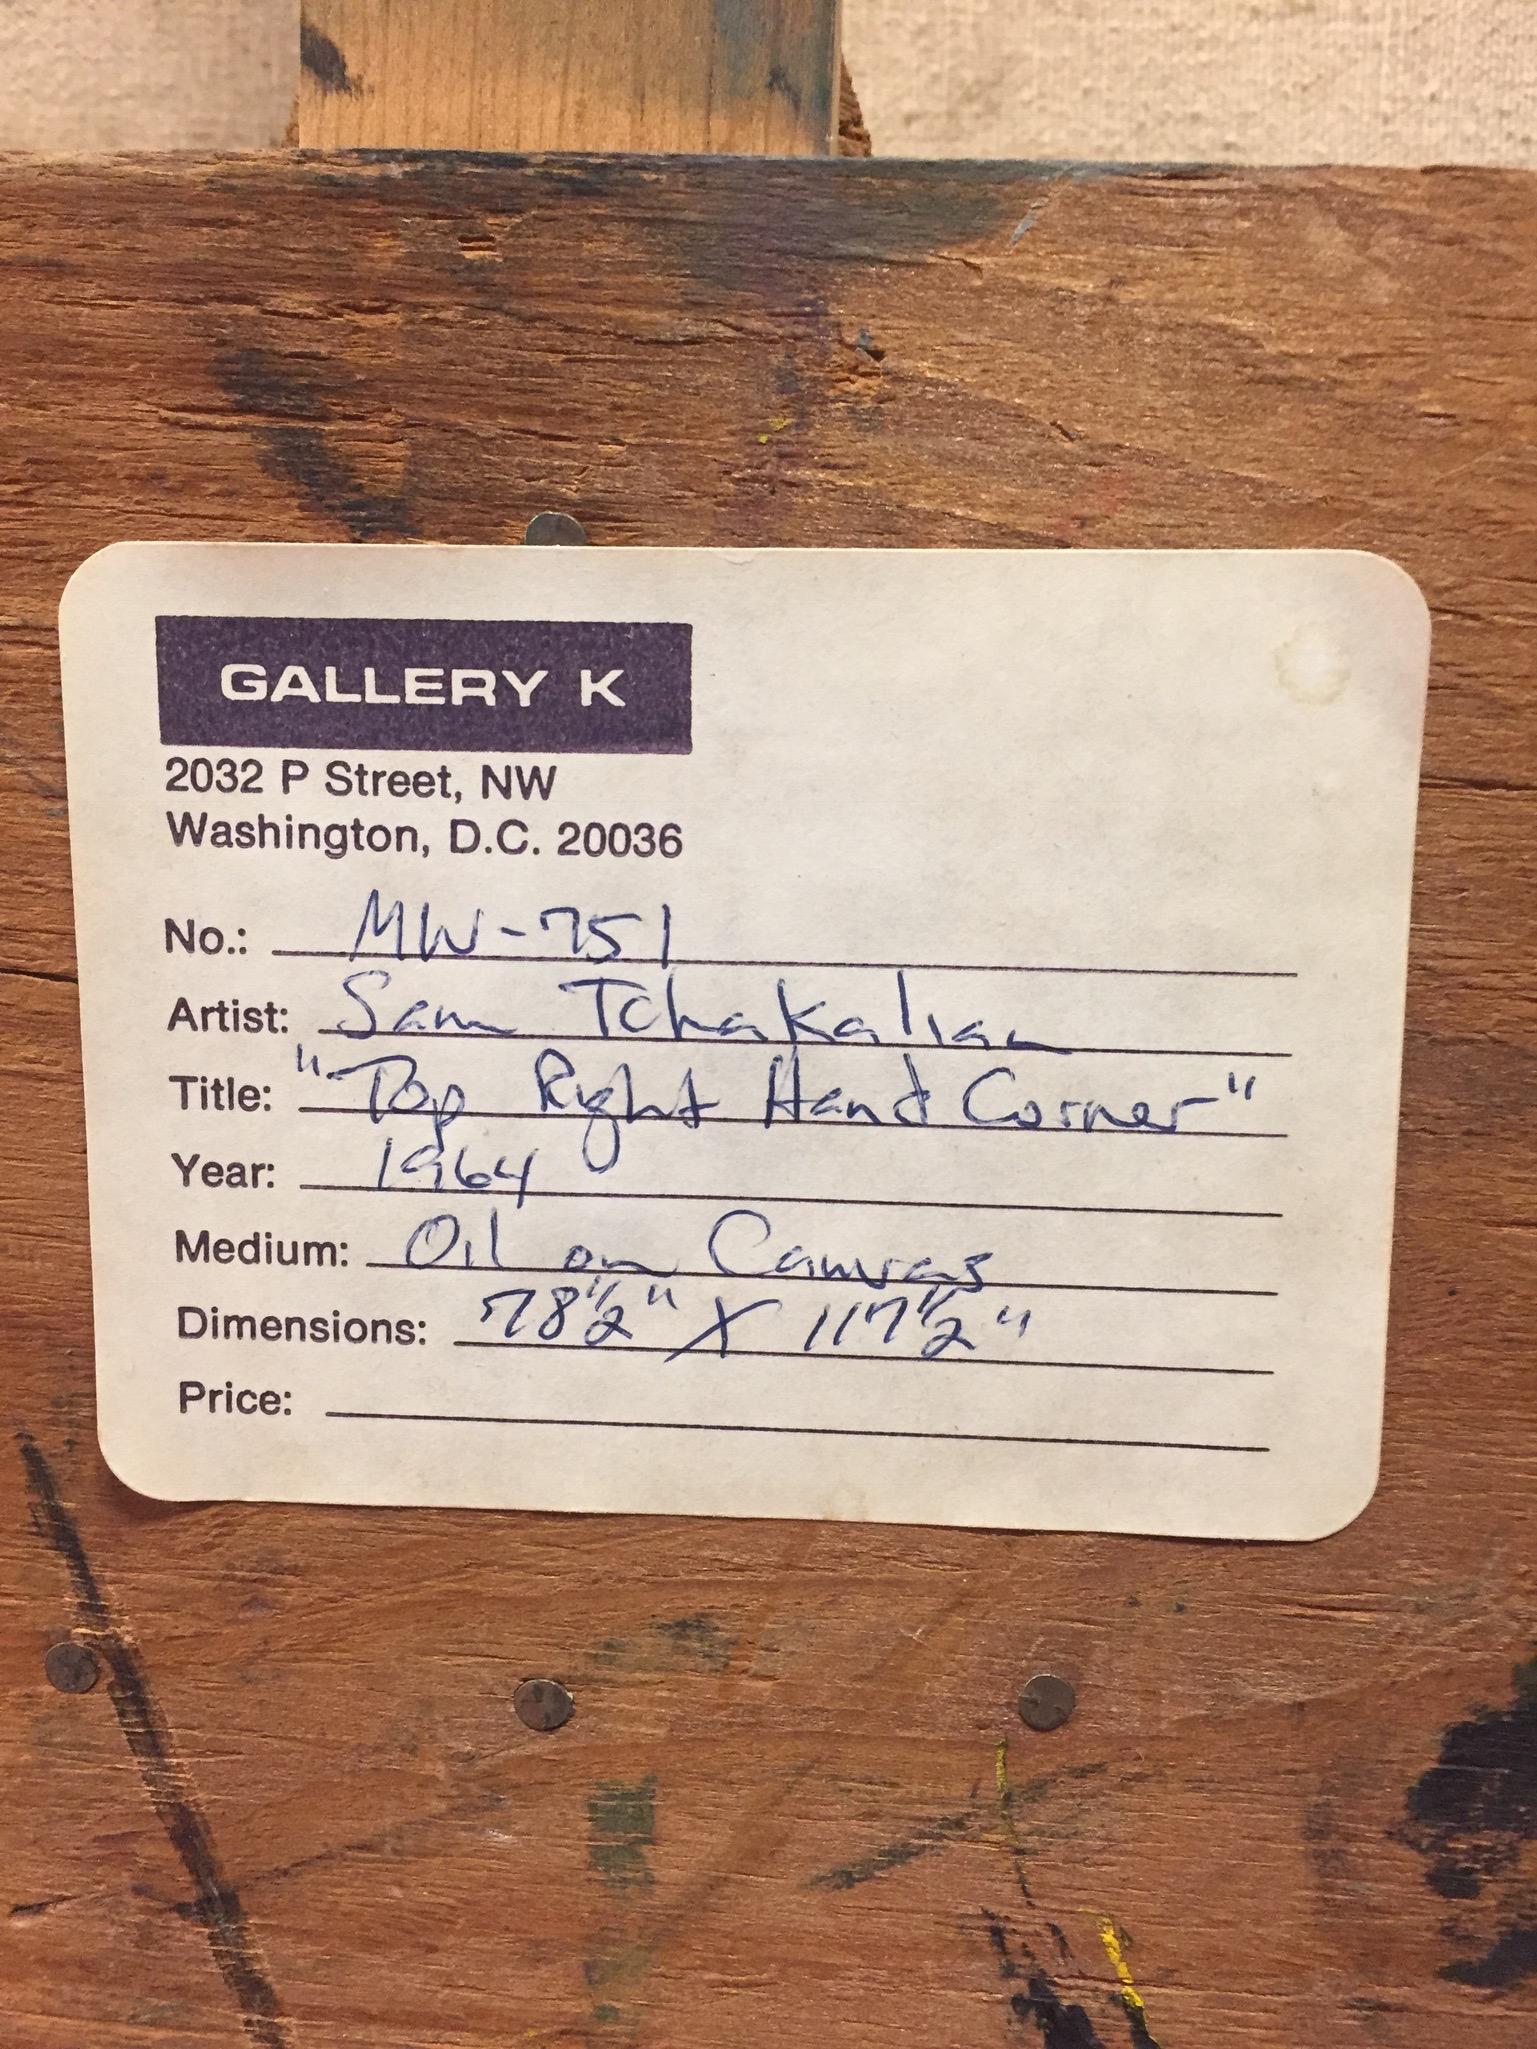 GALLERY K
2032 P Street, NW
Washington, D.C. 20036
No.: MW-751
Artist: Sam Tchakalian
Title: "Top Right Hand Corner"
Year: 1964
Medium: Oil on Canvas
Dimensions: 78 1/2" X 117 1/2"
Price: